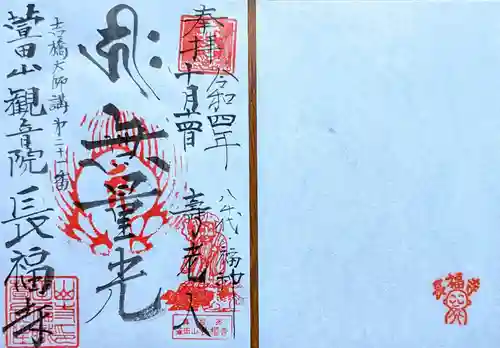 奉拝
令和四年
十月二十四日
八代福神
寿老人
無量光
吉橋大師講第二十一番
萱田山観音院 長福寺
長福寺